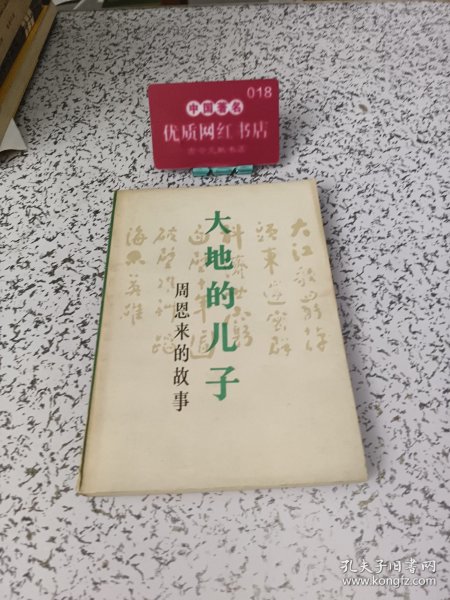 018
中国著名
优质网红书店
大地的儿子
周恩来的故事
大江歌罷掉
頭東邃密群
科濟世窮
面壁十年圖
破壁難酬蹈
海亦英雄
孔夫子旧书网
www.kongfz.com